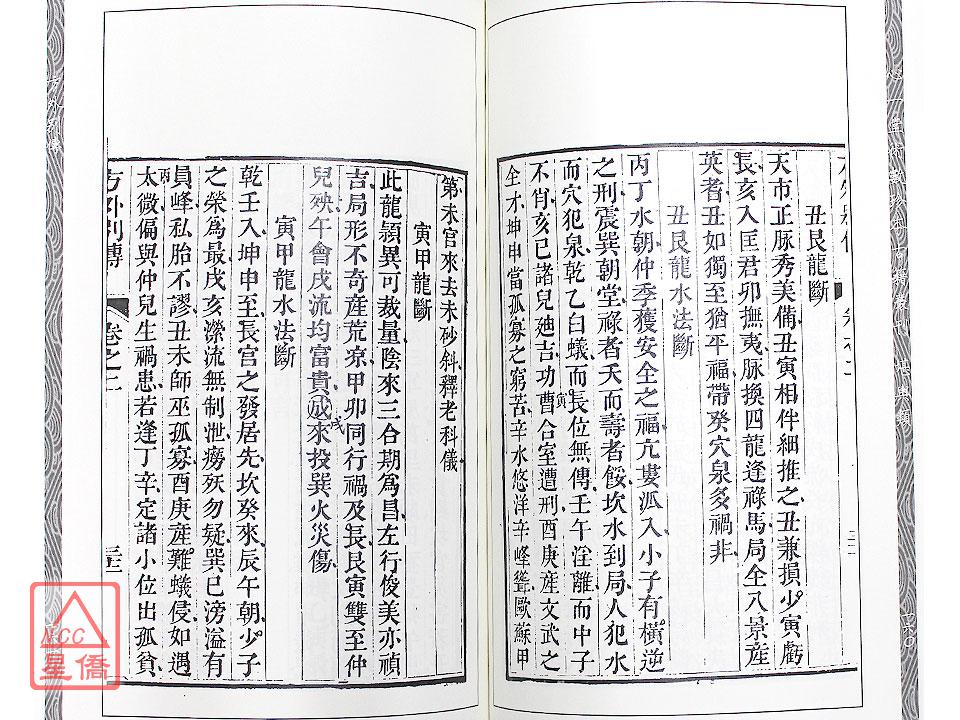 丑艮龍斷
天市正脉秀美備丑寅相伴細推之丑兼損少寅虧
長亥入匡君卯撫夷脉換四龍逢祿馬局全八景産
英耆丑如獨至猶平福帶癸穴泉多禍非
丑艮龍水法斷
丙丁水朝仲季獲安全之福亢婁泒入小子有橫逆
之刑震巽朝堂祿者夭而壽者餒坎水到局人犯水
而穴犯泉乾乙白蟻而長位無傳壬午淫離而中子
不肖亥巳諸兒廸吉功曹合室遭刑酉庚産文武之
寅
全才坤申當孤寡之窮苦辛水悠洋辛峰聳歐蘇甲
第未官來去未砂斜釋老科儀
寅甲龍斷
此龍頴異可裁量陰來三合期為昌左行俊美亦禎
吉局形不奇産荒凉甲卯同行禍及長艮寅雙至仲
兒殃午會戌流均富貴成來投巽火災傷
戌
寅甲龍水法斷
乾壬入坤申至長宫之發居先坎癸來辰午朝少子
之榮為最戌亥瀠流無制泄癆殀勿疑巽巳滂溢有
員峰私胎不謬丑未師巫孤寡酉庚産難蟻侵如遇
丙
太微偏與仲兒生禍患若逢丁辛定諸小位出孤貧
方外别傳 卷之二 三三
NCC
星僑